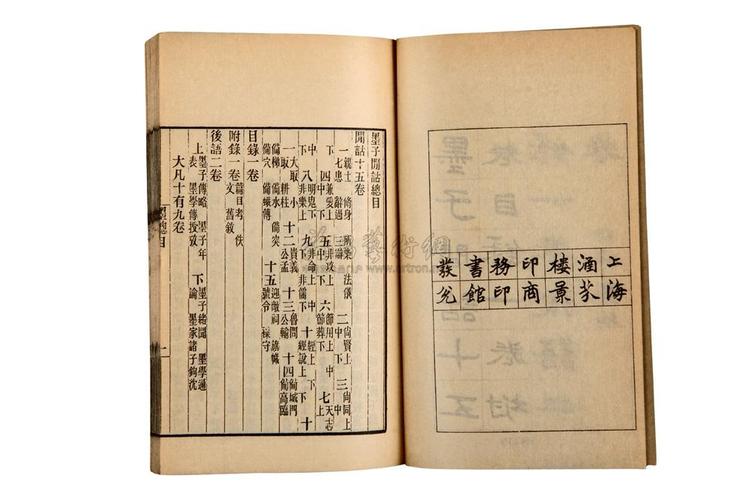 上海
涵芬
樓景
印商
務印
書館
發兌
墨子閒詁總目
閒詁十五卷
一親士 脩身 所染 法儀 七患 辭過 三辯 二尚賢上 中 下 三尚同上 中
下 四兼愛上 中 下 五非攻上 中 下 六節用上 中 節葬下 七天志上
中 下 八明鬼下 非樂上 九非命上 中 下 非儒下 十經上 下 經說上 下 十
一大取 小取 耕柱 十二貴義 公孟 十三魯問 公輸 十四備城門 備高臨
備梯 備水 備突 備穴 備蛾傅 十五迎敵祠 旗幟 號令 襍守
目錄一卷
附錄一卷 篇目考 佚文 舊敘
後語二卷
上 墨子傳略 墨子年表 墨學傳授攷 下 墨子緒聞 墨學通論 墨家諸子鉤沈
大凡十有九卷
墨總目
一